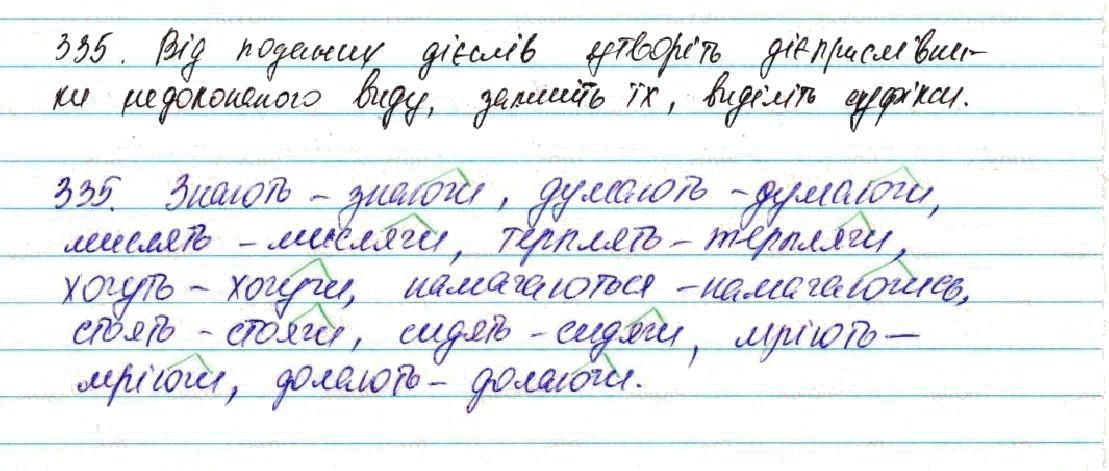 335. Від поданих дієслів утворіть дієприслівни-
ки недоконаного виду, запишіть їх, виділіть суфікси.
335. Знають – знаючи, думають – думаючи,
мислять – мислячи, терплять – терплячи,
хочуть – хочучи, намагаються – намагаючись,
стоять – стоячи, сидять – сидячи, мріють –
мріючи, долають – долаючи.